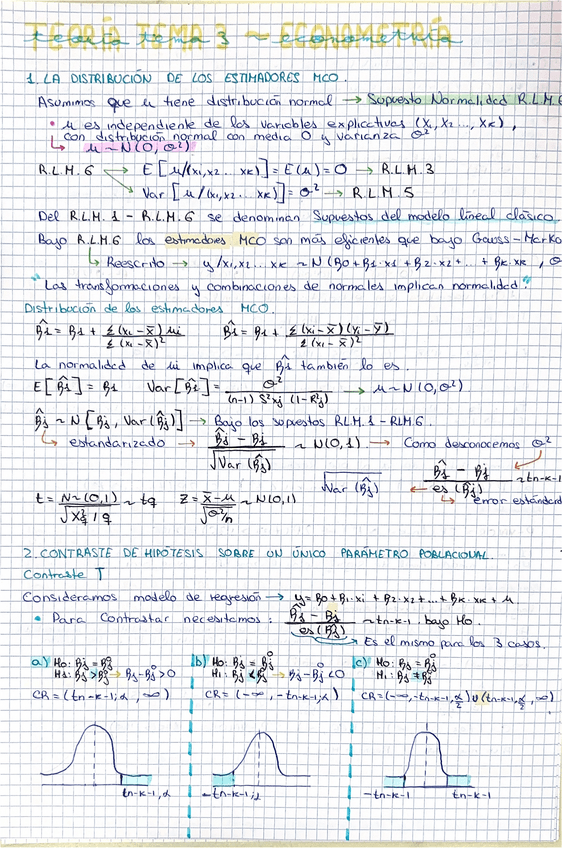 TEORÍA TEMA 3 ~ ECONOMETRÍA
teoría tema 3 ~ econometría
1. LA DISTRIBUCIÓN DE LOS ESTIMADORES MCO.
Asumimos que u tiene distribución normal → Supuesto Normalidad R.L.M.6
• u es independiente de las variables explicativas (x₁, x₂ ..., xk),
con distribución normal con media 0 y varianza σ²
↳ u ~ N(0, σ²)
R.L.M. 6 → E[u/(x₁, x₂ ... xk)] = E(u) = 0 → R.L.M. 3
→ Var[u/(x₁, x₂ ... xk)] = σ² → R.L.M. 5
Del R.L.M. 1 - R.L.M. 6 se denominan Supuestos del modelo lineal clásico.
Bajo R.L.M.6 los estimadores MCO son más eficientes que bajo Gauss-Marko
↳ Reescrito → y/x₁, x₂ ... xk ~ N(β0 + β1·x1 + β2·x2 + ... + βk·xk, σ
"Las transformaciones y combinaciones de normales implican normalidad."
Distribución de los estimadores MCO.
β̂1 = β1 + Σ(xi - x̄)ui / Σ(xi - x̄)² β̂1 = β1 + Σ(xi - x̄)(yi - ȳ) / Σ(xi - x̄)²
La normalidad de ui implica que β̂j también lo es.
E[β̂j] = βj Var[β̂j] = σ² / (n-1) S²xj (1-R²j) → u ~ N(0, σ²)
β̂j ~ N[βj, Var(β̂j)] → Bajo los supuestos R.L.M. 1 - RLM6.
↳ estandarizado → β̂j - βj / √Var(β̂j) ~ N(0,1) → Como desconocemos σ²
√Var(β̂j) ← β̂j - βj / es(β̂j) ~ tn-k-1
↳ error estándar
t = N~(0,1) / √X²q / q ~ tq Z = x̄ - u / √σ²/n ~ N(0,1)
2. CONTRASTE DE HIPÓTESIS SOBRE UN ÚNICO PARÁMETRO POBLACIONAL.
Contraste T
Consideramos modelo de regresión → y = β0 + β1·x1 + β2·x2 + ... + βk·xk + u.
• Para Contrastar necesitamos: β̂j - βj / es(β̂j) ~ tn-k-1 bajo H0.
→ Es el mismo para los 3 casos.
a) H0: βj = βj⁰
H1: βj > βj⁰ → βj - βj⁰ > 0
CR = (tn-k-1;α, ∞)
tn-k-1,α
b) H0: βj = βj⁰
H1: βj < βj⁰ → βj - βj⁰ < 0
CR = (-∞, -tn-k-1;α)
-tn-k-1;α
c) H0: βj = βj⁰
H1: βj ≠ βj⁰
CR = (-∞, -tn-k-1, α/2) ∪ (tn-k-1, α/2, ∞)
-tn-k-1 tn-k-1